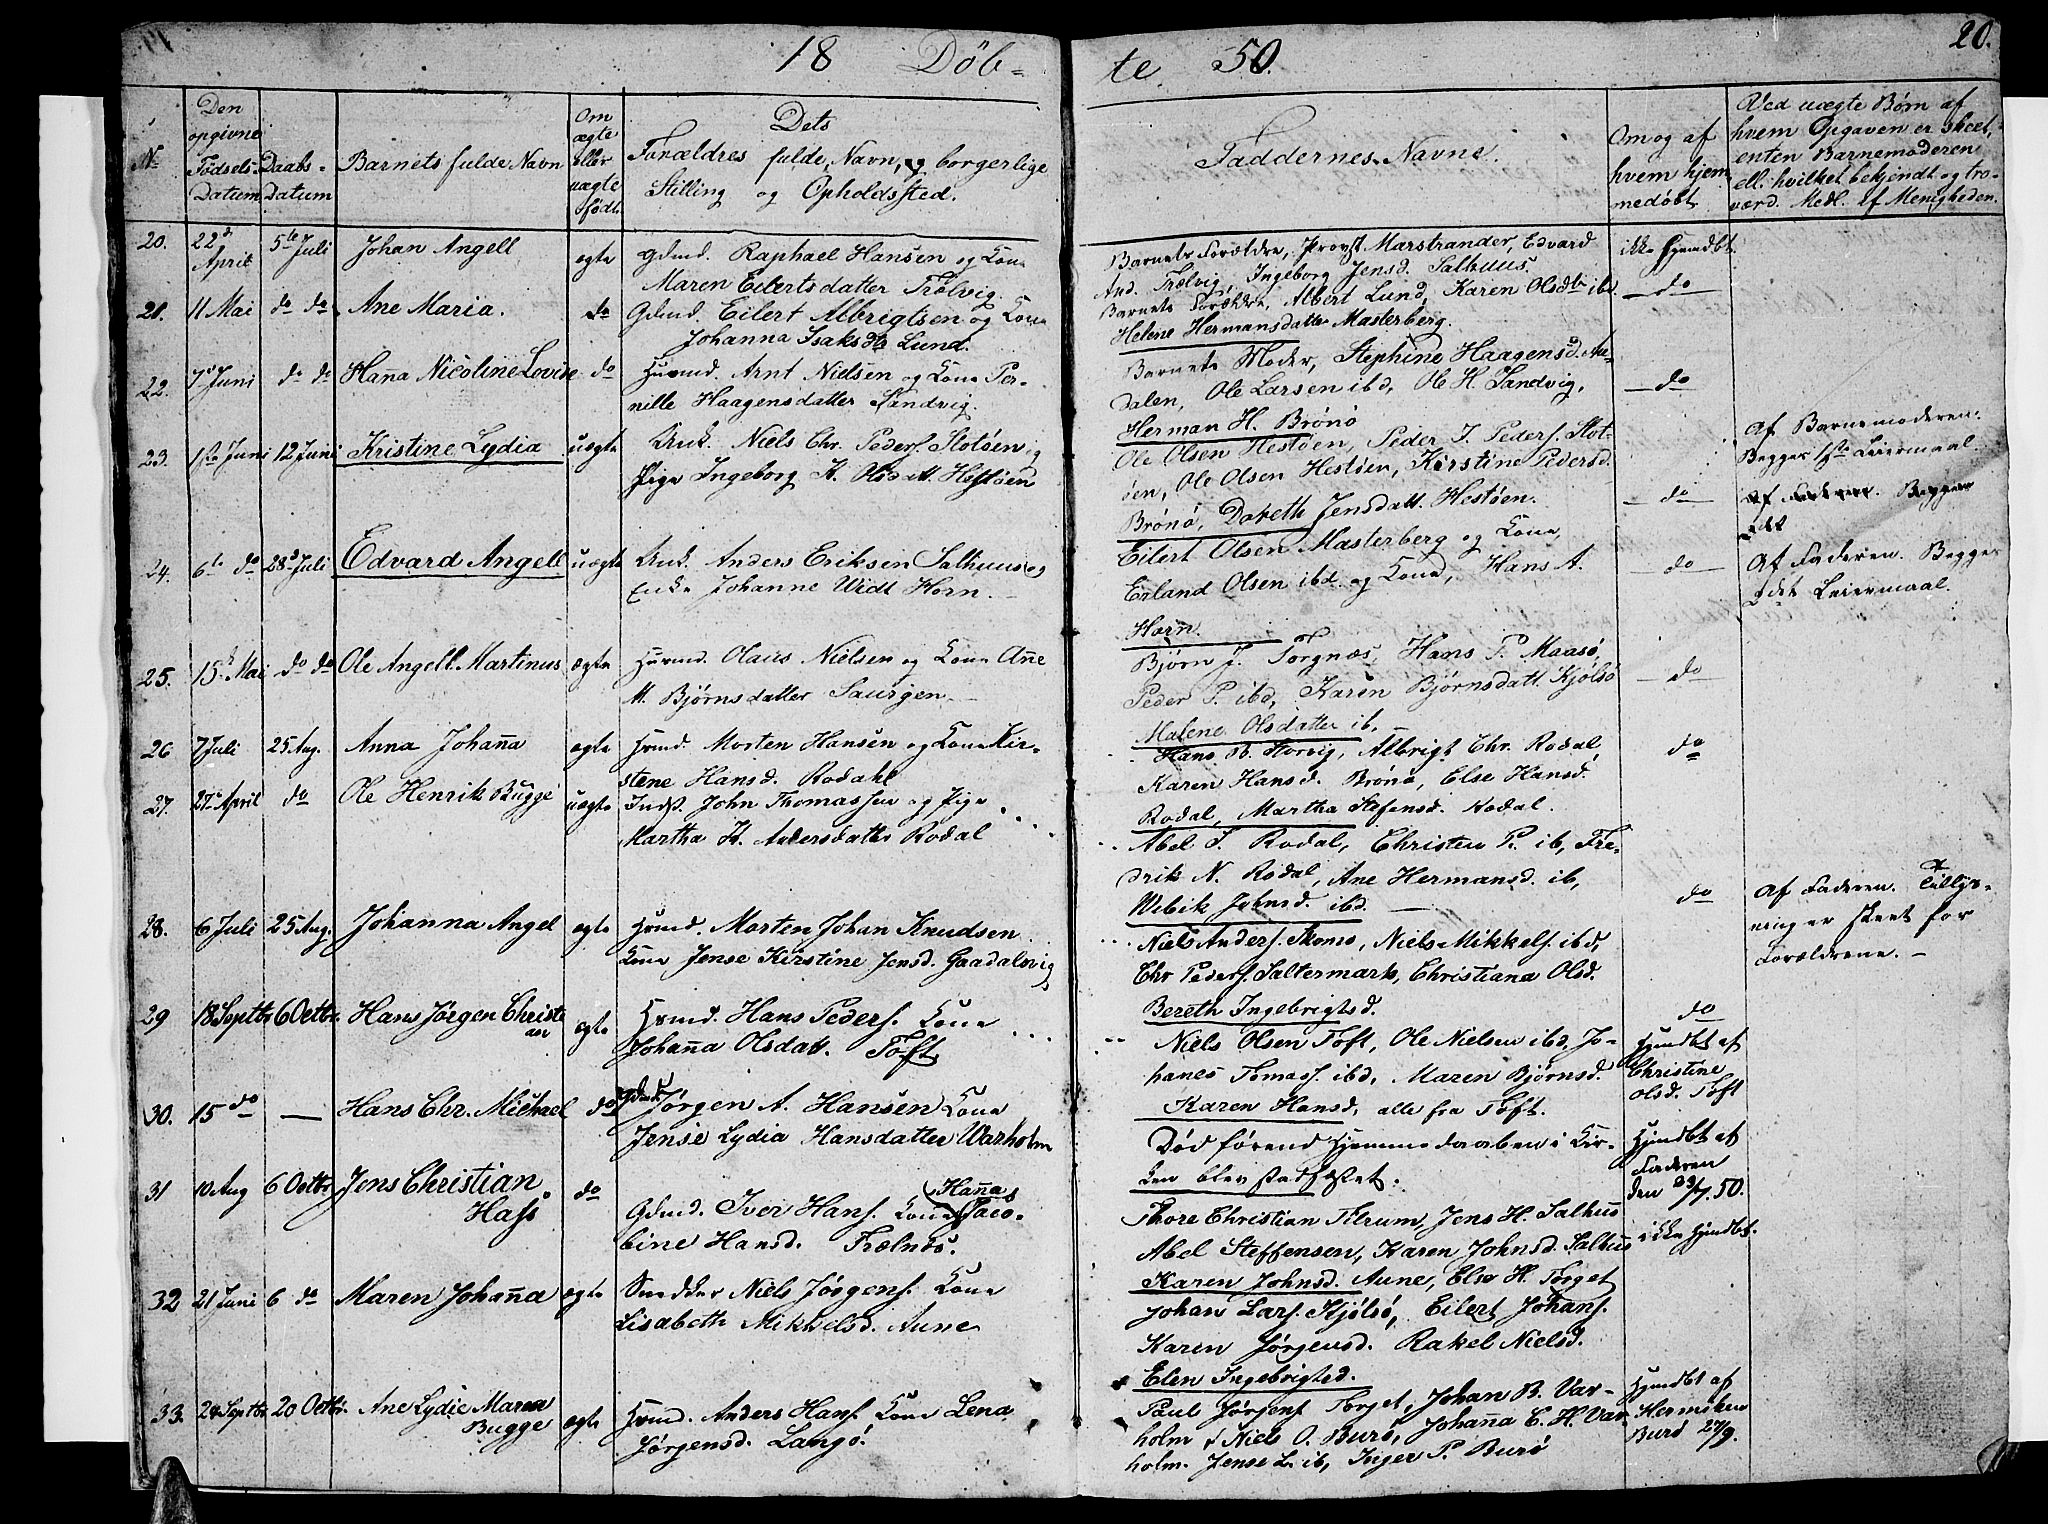 18 Döb=
te 50.
20.
No
Den opgivne Fødsels Datum
Daabs-Datum
Barnets fulde Navn
Om ægte eller uægte født.
Dets Forældres fulde Navn, og borgerlige Stilling og Opholdssted.
Faddernes Navne.
Om og af hvem hjemmedøbt
Ved uægte Børn af hvem Opgaven er skeet, enten Barnemoderen ell. hvilket bekjendt og troværd. Medl. af Menigheden.
20. 22d April 5te Juli Johan Angell ægte Gdmd. Raphael Hansen og Kone
Maren Eilertsdatter Trælvig.
Barnets Forældre, Provst Marstrander, Edvard
And. Trælvig, Ingeborg Jensd. Salhuus.
ikke hjemdbt
21. 11 Mai do do Ane Maria. do Gdmd. Eilert Albrigtsen og Kone
Johanna Isaksdtr Lund.
Barnets Forældre, Albert Lund, Karen Olsdtr ibd.
Helene Hermansdatter Masterberg.
do
22. 7d Juni do do Hana Nicoline Lovise do Huusmd. Arnt Nielsen og Kone Per-
nille Haagensdatter Sandvig.
Barnets Moder, Stephine Haagensd. Au-
dalen, Ole Larsen ibd, Ole H. Sandvig,
Herman H. Brønø
do
23. 1ste Juni 12 Juni Kristine Lydia uægte Unk. Niels Chr. Peders. Slotøen og
Pige Ingeborg K. Olsdatt. Hestøen
Ole Olsen Hestøen, Peder J. Peders. Slot-
øen, Ole Olsen Hestøen, Kirstine Pedersd.
Brønø, Doreth Jensdatt. Hestøen.
do
Af Barnemoderen.
Begges 1ste Leiermaal.
Af Faderen. Begges
24. 6te do 28d Juli Edvard Angell uægte Unk. Anders Eriksen Salhuus og
Enke Johanne Widt Horn.
Eilert Olsen Masterberg og Kone,
Erland Olsen ibd. og Kone, Hans A.
Horn.
do
Af Faderen. Begges
2det Leiermaal.
25. 15d Mai do do Ole Angell Martinus ægte Huusmd. Olaus Nielsen og Kone Ane
M. Bjørnsdatter Saurgen.
Bjørn J. Torgnæs, Hans P. Maasø,
Peder P. ibd, Karen Bjørnsdatt. Kjølsø
Malene Olsdatter ib.
do
26 7 Juli 25 Aug. Anna Johana ægte Huusmd. Morten Hansen og Kone Kir-
stene Hansd. Rodahl
Hans B. Horvig, Albrigt Chr. Rodal,
Karen Hansd. Brønø, Else Hansd.
Rodal, Martha Stefensd. Rodal.
do
27. 27d April do Ole Henrik Bugge uægte Inds. John Thomassen og Pige
Martha K. Andersdatter Rodal
Abel S. Rodal, Christen P. ib, Fre-
drik N. Rodal, Ane Hermansd. ib,
Wibik Johnsd. ibd.
do
Af Faderen. Tillys-
ning er skeet for
Forældrene.
28. 6 Juli 25 Aug. Johanna Angel ægte Huusmd. Morten Johan Knudsen
Kone Jense Kirstine Jensd. Gaadalsvig
Niels Anders. Tkomo, Niels Mikkels. ibd,
Chr Peders. Saltermark, Christiana Olsd.
Bereth Ingebrigtsd.
do
29 18 Septbr 6 Octbr. Hans Jörgen Christi
an ægte Huusmd. Hans Peders. Kone
Johana Olsdatt. Toft
Niels Olsen Toft, Ole Nielsen ibd, Jo-
hanes Tomass. ibd, Maren Bjørnsd.
Karen Hansd, alle fra Toft.
Hjmdbt af
Christine
Olsd. Toft
30. 15 do — Hans Chr. Michael do Gdmd. Jörgen A. Hansen Kone
Jense Lydia Hansdatter Warholm
Död förend Hjemmedaaben i Kir-
ken blev stadfæstet.
Hjmdbt af
Faderen
den 23/7 50.
31 10 Aug 6 Octbr Jens Christian
Hass do Gdmd. Iver Hans. Kone (Hana) Jaco-
bine Hansd. Trælnæs.
Thore Christian Tilrum, Jens H. Salhus
Abel Steffensen, Karen Johnsd. Salhus
Karen Johnsd. Aune, Else H. Torget
ikke hjmdbt.
32 21 Juni 6 do Maren Johana ægte Snedker Niels Jörgens. Kone
Lisabeth Mikkelsd. Aune
Johan Lars. Kjølsø, Eilert Johans.
Karen Jörgensd. Rakel Nielsd.
Elen Ingebrigtsd.
33. 24 Septbr. 20 Octbr. Ane Lydie Maren
Bugge ægte Huusmd. Anders Hans. Kone Lena
Jørgensd. Langö.
Paul Jørgens. Torget, Johan B. Var-
holm, Niels O. Burö, Johana C. H. Var-
holm. Jense L. ib, Inger P. Burö
Hjmdbt af
Burö 27/9.